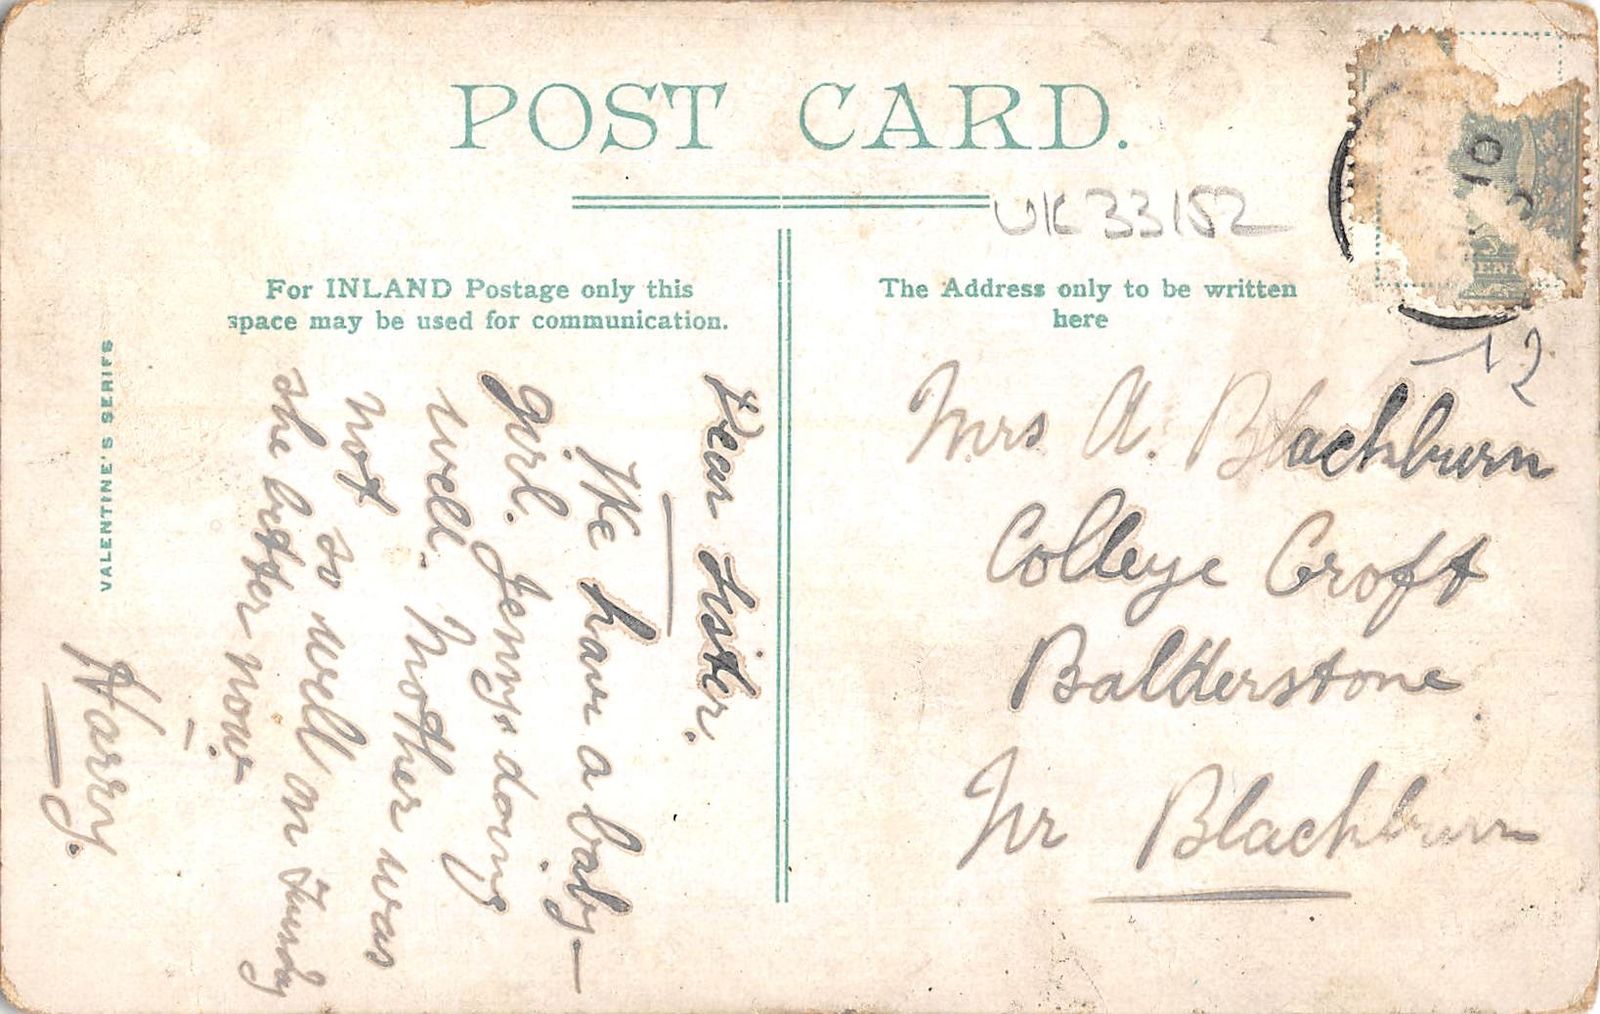 POST CARD.
UK33152
For INLAND Postage only this
space may be used for communication.
The Address only to be written
here
VALENTINE'S SERIES
Dear Sister.
We have a baby—
girl. Jennys doing
well. Mother was
not so well on Sunday
she better now.
Harry.
12
Mrs A. Blackburn
College Croft
Balderstone
Nr Blackburn